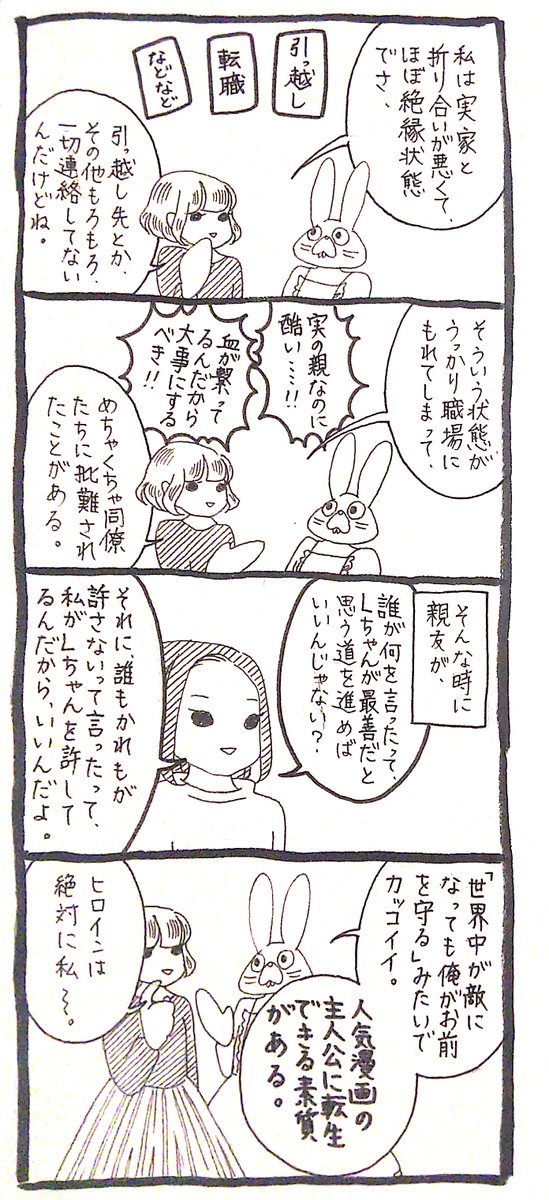 私は実家と
折り合いが悪くて、
ほぼ絶縁状態
でさ、
引っ越し
転職
などなど
引っ越し先とか、
その他もろもろ、
一切連絡してない
んだけどね。
そういう状態が
うっかり職場に
もれてしまって、
実の親なのに
酷い…!!
血が繋って
るんだから
大事にする
べき!!
めちゃくちゃ同僚
たちに批難され
たことがある。
そんな時に
親友が、
誰が何を言ったって、
Lちゃんが最善だと
思う道を進めば
いいんじゃない?
それに、誰もかれもが
許さないって言ったって、
私がLちゃんを許して
るんだから、いいんだよ。
「世界中が敵に
なっても俺がお前
を守る」みたいで
カッコイイ。
人気漫画の
主人公に転生
できる素質
がある。
ヒロインは
絶対に私〜。